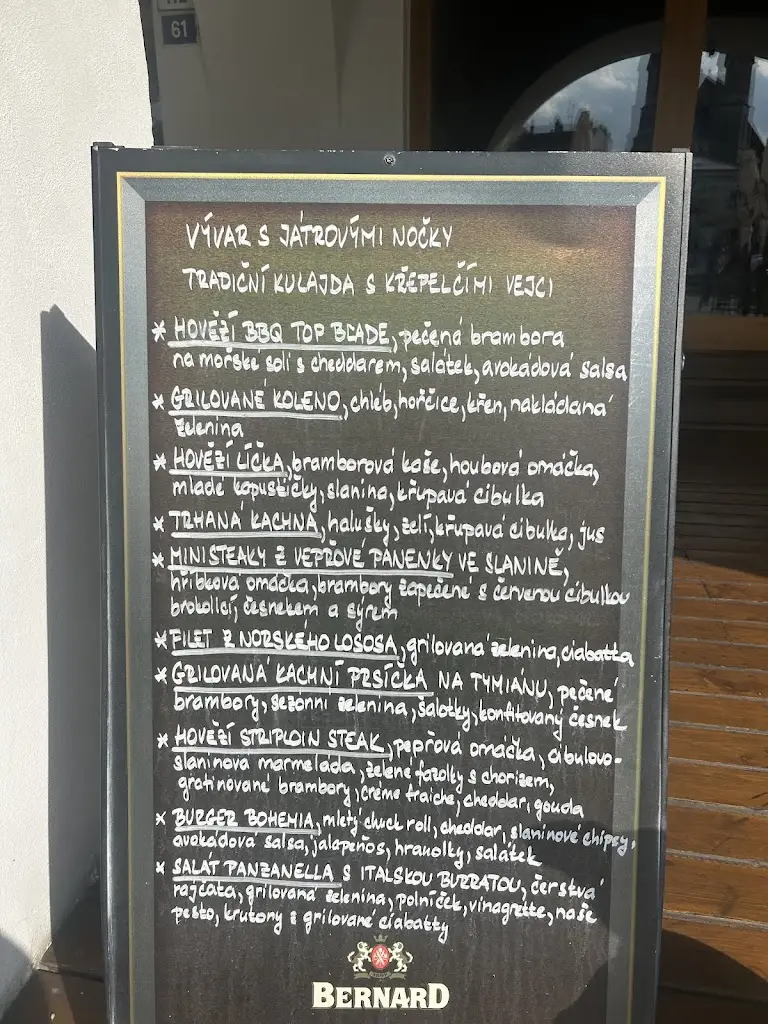 61
VÝVAR S JÁTROVÝMI NOČKY
TRADIČNÍ KULAJDA S KŘEPELČÍMI VEJCI
* HOVĚZÍ BBQ TOP BLADE, pečená brambora
na mořské soli s cheddarem, salátek, avokádová salsa
* GRILOVANÉ KOLENO, chléb, hořčice, křen, nakládaná
zelenina
* HOVĚZÍ LÍČKA, bramborová kaše, houbová omáčka,
mladé kapustičky, slanina, křupavá cibulka
* TRHANÁ KACHNA, halušky, zelí, křupavá cibulka, jus
* MINISTEAKY Z VEPŘOVÉ PANENKY VE SLANINĚ,
hříbková omáčka, brambory zapečené s červenou cibulkou
brokolicí, česnekem a sýrem
* FILET Z NORSKÉHO LOSOSA, grilovaná zelenina, ciabatta
* GRILOVANÁ KACHNÍ PRSÍČKA NA TYMIÁNU, pečené
brambory, sezónní zelenina, šalotky, konfitovaný česnek
* HOVĚZÍ STRIPLOIN STEAK, pepřová omáčka, cibulovo-
slaninová marmeláda, zelené fazolky s chorizem,
gratinované brambory, créme fraiche, cheddar, gouda
* BURGER BOHEMIA, mletý chuck roll, cheddar, slaninové chipsy,
avokádová salsa, jalapeños, hranolky, salátek
* SALÁT PANZANELLA S ITALSKOU BURRATOU, čerstvá
rajčata, grilovaná zelenina, polníček, vinagrette, naše
pesto, krutony z grilované ciabatty
BERNARD